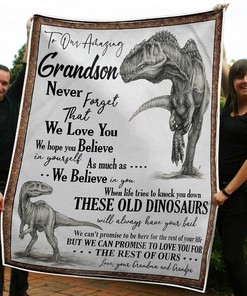 To Our Amazing
Grandson
Never
Forget
That
We Love You
We hope you Believe
in yourself
As much as ....
.. We Believe in you
When life tries to knock you down
THESE OLD DINOSAURS
will always have your back
We can't promise to be here for the rest of your life
BUT WE CAN PROMISE TO LOVE YOU FOR
THE REST OF OURS ....
Love, your Grandma and Grandpa